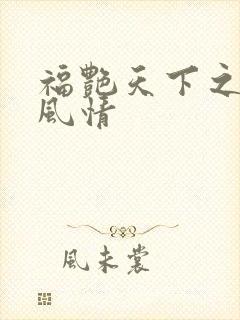 福艷天下之
風情
風未裳